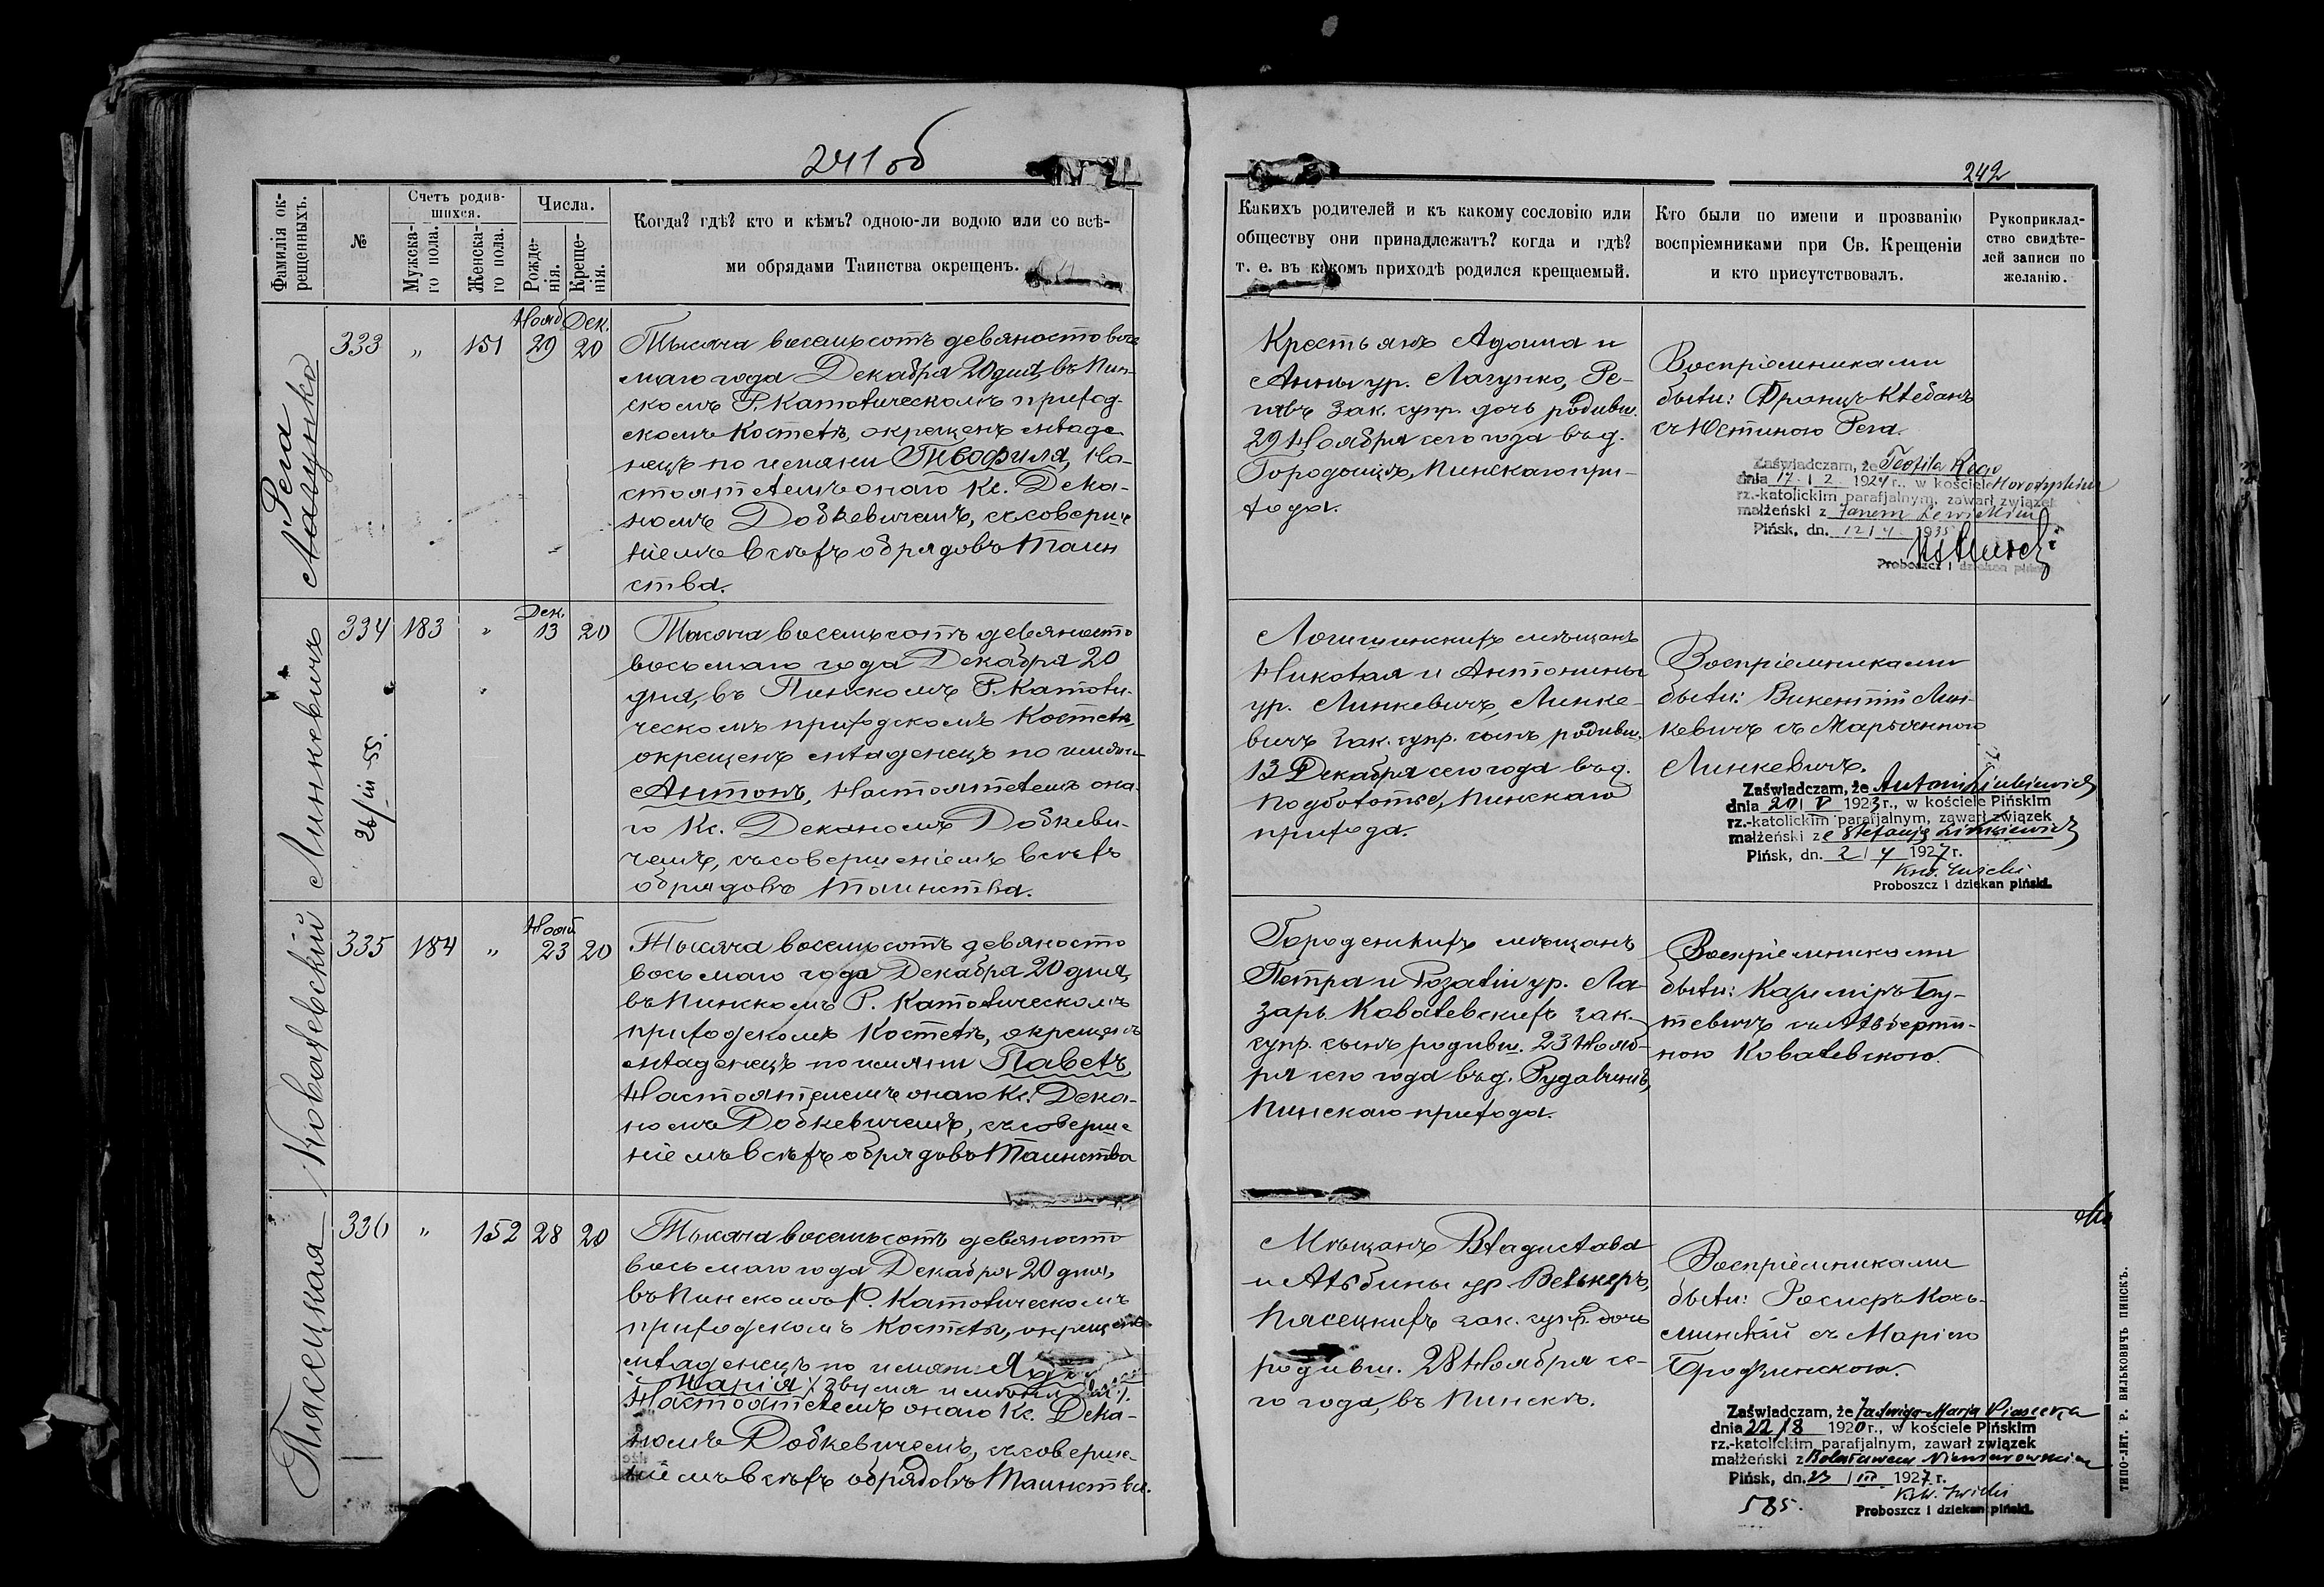 241 об
Фамилія ок-
рещенныхъ.
№
Счетъ родив-
шихся.
Мужска-
го пола.
Женска-
го пола.
Числа.
Рожде-
нія.
Креще-
нія.
Когда? гдѣ? кто и кѣмъ? одною-ли водою или со всѣ-
ми обрядами Таинства окрещенъ.
Рега
Лагунко
333 „ 151 Нояб. 29 Дек. 20
Тысяча восемьсотъ девяносто вось
маго года Декабря 20 дня, въ Пин-
скомъ Р. Католическомъ приход-
скомъ Костелѣ, окрещенъ младе
нецъ по имени Теофиля, На-
стоятелемъ онаго Кс. Дека-
номъ Добкевичемъ, съ соверше
ніемъ всѣхъ обрядовъ Таин
ства.
Линкевичъ
334 183 „ Дек. 13 20
26/III-55.
Тысяча восемьсотъ девяносто
восьмаго года Декабря 20
дня, въ Пинскомъ Р. Католи-
ческомъ приходскомъ Костелѣ,
окрещенъ младенецъ по имени
Антонъ, Настоятелемъ она-
го Кс. Деканомъ Добкеви-
чемъ, съ совершеніемъ всѣхъ
обрядовъ Таинства.
Ковалевскій
335 184 „ Нояб. 23 20
Тысяча восемьсотъ девяносто
восьмаго года Декабря 20 дня,
въ Пинскомъ Р. Католическомъ
приходскомъ Костелѣ, окрещенъ
младенецъ по имени Павелъ,
Настоятелемъ онаго Кс. Дека-
номъ Добкевичемъ, съ соверше
ніемъ всѣхъ обрядовъ Таинства
Пясецкая
336 „ 152 28 20
Тысяча восемьсотъ девяносто
восьмаго года Декабря 20 дня,
въ Пинскомъ Р. Католическомъ
приходскомъ Костелѣ, окрещенъ
младенецъ по имени
Марія двумя именами
Настоятелемъ онаго Кс. Дека-
номъ Добкевичемъ, съ соверше-
ніемъ всѣхъ обрядовъ Таинства.
242
Какихъ родителей и къ какому сословію или
обществу они принадлежатъ? когда и гдѣ?
т. е. въ какомъ приходѣ родился крещаемый.
Кто были по имени и прозванію
воспріемниками при Св. Крещеніи
и кто присутствовалъ.
Рукоприклад-
ство свидѣте-
лей записи по
желанію.
Крестьянъ Адама и
Анны ур. Лагунко, Ре-
гявъ зак. супр. дочь родивш.
29 Ноября сего года въ д.
Городищѣ, Пинскаго при-
хода.
Воспріемниками
были: Францъ Клебанъ
съ Юстиною Рега.
Zaświadczam, że Teofila Rega
dnia 17 / 2 1924 r., w kościele
rz.-katolickim parafjalnym, zawarł związek
małżeński z Janem Lewickim
Pińsk, dn. 12 / 4 1935
Proboszcz i dziekan piński.
Логишинскихъ мѣщанъ
Николая и Антонины
ур. Линкевичъ, Линке-
вичъ зак. супр. сынъ родивш.
13 Декабря сего года въ д.
Подболотье, Пинскаго
прихода.
Воспріемниками
были: Викентій Лин-
кевичъ съ Марьянною
Линкевичъ.
Zaświadczam, że Antoni Linkiewicz
dnia 20 / V 1923 r., w kościele Pińskim
rz.-katolickim parafjalnym, zawarł związek
małżeński ze Stefanją Linkiewicz
Pińsk, dn. 2 / 4 1927 r.
Proboszcz i dziekan piński.
Городенскихъ мѣщанъ
Петра и Розаліи ур. Ла-
заръ Ковалевскихъ зак.
супр. сынъ родивш. 23 Нояб-
ря сего года въ д. Рудавинѣ,
Пинскаго прихода.
Воспріемниками
были: Казиміръ Бу-
тевичъ съ Альберти-
ною Ковалевскою.
Мѣщанъ Владислава
и Альбины ур Велькеръ,
Пясецкихъ зак. супр. дочь
родивш. 28 Ноября се-
го года, въ Пинскѣ.
Воспріемниками
были: Росперъ Козь-
минскій съ Маріею
Zaświadczam, że Jadwiga-Marja Piasecka
dnia 22 / 8 1920 r., w kościele Pińskim
rz.-katolickim parafjalnym, zawarł związek
małżeński z Bolesławem
Pińsk, dn. 23 / III 1927 r.
585.
Proboszcz i dziekan piński.
ТИПО-ЛИТ. Р. ВИЛЬКОВИЧЪ ПИНСКЪ.